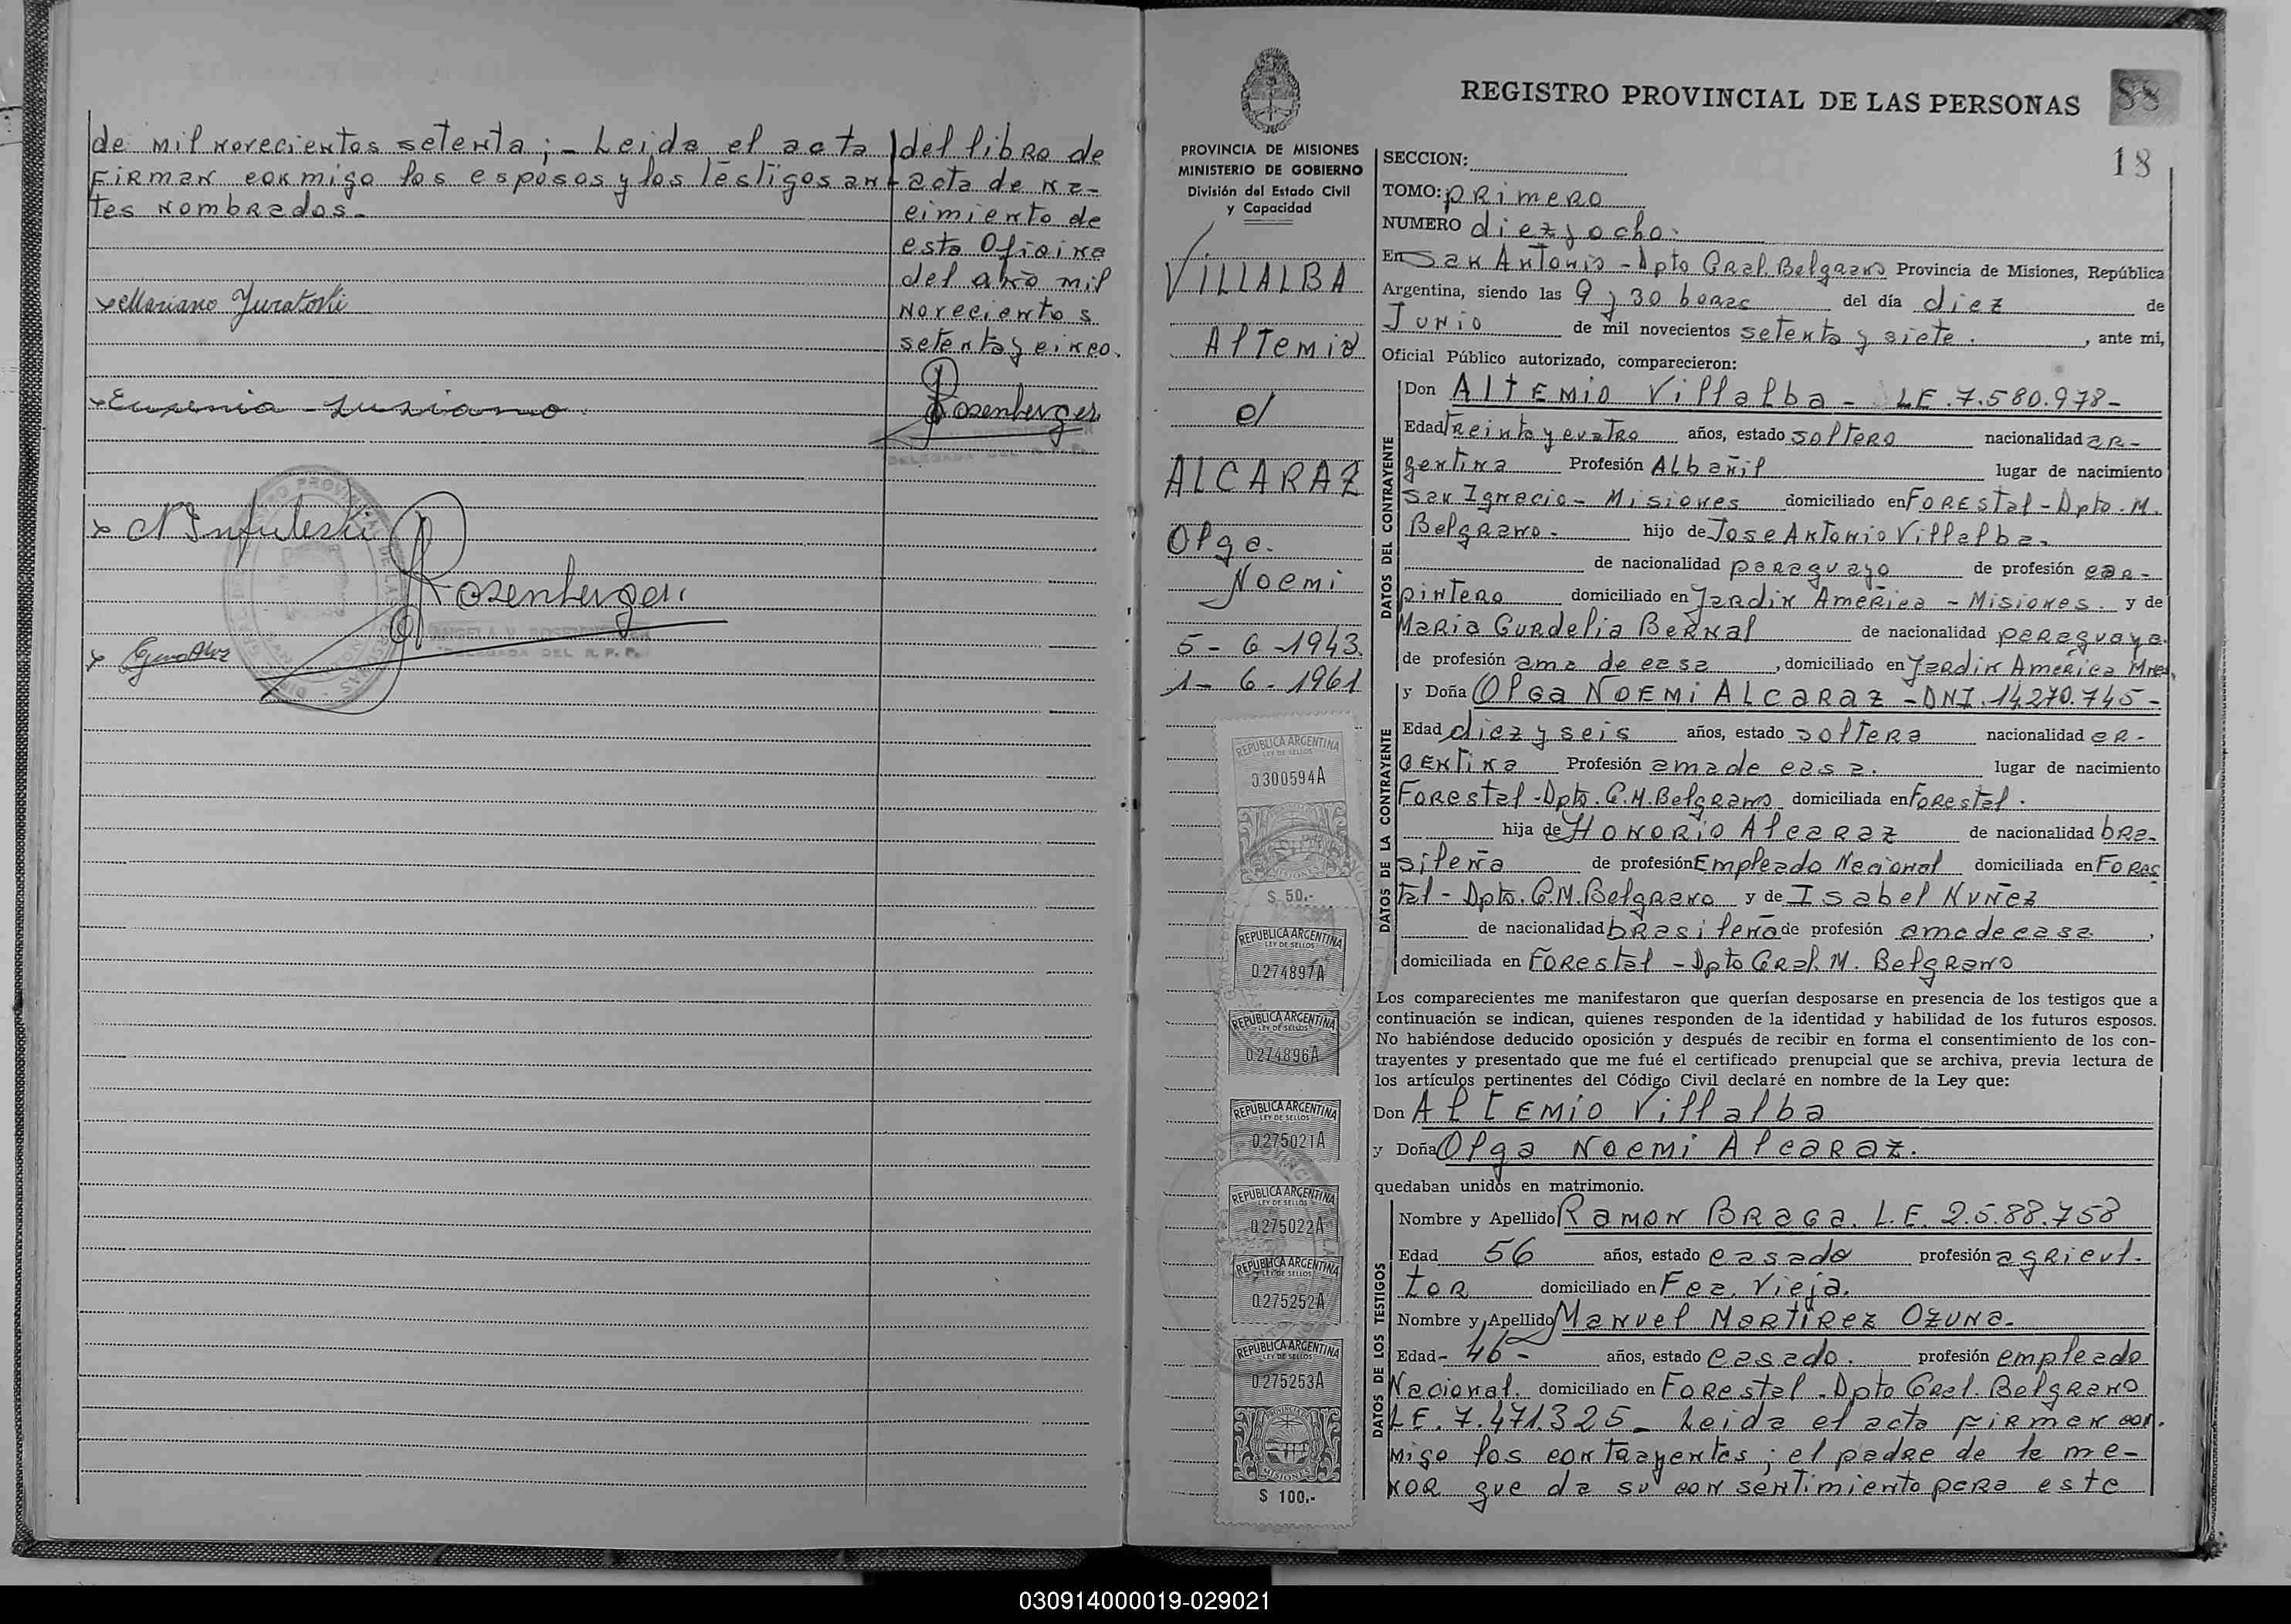 de mil novecientos setenta; - Leida el acta
Firman conmigo los esposos y los testigos an-
tes nombrados.-
del libro de
acta de na-
cimiento de
esta Oficina
del año mil
novecientos
setenta y cinco.
Mariano Juratoski
Eugenia
Rosenberger
DELEGADA DEL R. P. P.
Rosenberger
ANGELA V. ROSENBERGER
DELEGADA DEL R. P. P.
REGISTRO PROVINCIAL DE LAS PERSONAS
88
18
PROVINCIA DE MISIONES
MINISTERIO DE GOBIERNO
División del Estado Civil
y Capacidad
VILLALBA
Altemio
c/
ALCARAZ
Olga
Noemi
5-6-1943
1-6-1961
REPUBLICA ARGENTINA
LEY DE SELLOS
0.300594A
$ 50.-
REPUBLICA ARGENTINA
LEY DE SELLOS
0.274897A
REPUBLICA ARGENTINA
LEY DE SELLOS
0.274896A
REPUBLICA ARGENTINA
LEY DE SELLOS
0.275021A
REPUBLICA ARGENTINA
LEY DE SELLOS
0.275022A
REPUBLICA ARGENTINA
LEY DE SELLOS
0.275252A
REPUBLICA ARGENTINA
LEY DE SELLOS
0.275253A
PROVINCIA DE
MISIONES
$ 100.-
SECCION:
TOMO: primero
NUMERO diez y ocho.
En San Antonio - Dpto Gral. Belgrano Provincia de Misiones, República
Argentina, siendo las 9 y 30 horas del día diez de
Junio de mil novecientos setenta y siete. , ante mi,
Oficial Público autorizado, comparecieron:
DATOS DEL CONTRAYENTE
Don Altemio Villalba - LE. 7.580.978-
Edad treinta y cuatro años, estado soltero nacionalidad ar-
gentina Profesión Albañil lugar de nacimiento
San Ignacio - Misiones domiciliado en Forestal - Dpto. M.
Belgrano - hijo de Jose Antonio Villalba.
de nacionalidad paraguayo de profesión car-
pintero domiciliado en Jardin America - Misiones. y de
Maria Gurdelia Bernal de nacionalidad paraguaya.
de profesión ama de casa , domiciliado en Jardin America Mnes.
DATOS DE LA CONTRAYENTE
y Doña Olga Noemi Alcaraz - DNI. 14.270.745-
Edad diez y seis años, estado soltera nacionalidad ar-
gentina Profesión ama de casa. lugar de nacimiento
Forestal - Dpto. G. M. Belgrano domiciliada en Forestal.
hija de Honorio Alcaraz de nacionalidad bra-
sileña de profesión Empleado Nacional domiciliada en Fores
tal - Dpto. G. M. Belgrano y de Isabel Nuñez
de nacionalidad brasileña de profesión ama de casa ,
domiciliada en Forestal - Dpto Gral. M. Belgrano
Los comparecientes me manifestaron que querían desposarse en presencia de los testigos que a
continuación se indican, quienes responden de la identidad y habilidad de los futuros esposos.
No habiéndose deducido oposición y después de recibir en forma el consentimiento de los con-
trayentes y presentado que me fué el certificado prenupcial que se archiva, previa lectura de
los artículos pertinentes del Código Civil declaré en nombre de la Ley que:
Don Altemio Villalba
y Doña Olga Noemi Alcaraz.
quedaban unidos en matrimonio.
DATOS DE LOS TESTIGOS
Nombre y Apellido Ramon Braga. L.E. 2.5.88.758
Edad 56 años, estado casado profesión agricul-
tor domiciliado en Fca. Vieja.
Nombre y Apellido Manuel Martirez Ozuna.
Edad - 46 - años, estado casado. profesión empleado
Nacional. domiciliado en Forestal - Dpto Gral. Belgrano
LE. 7.471.325 - Leida el acta firman con-
migo los contrayentes; el padre de la me-
nor que da su consentimiento para este
030914000019-029021